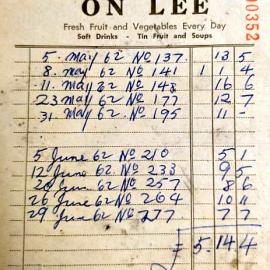 ON LEE
Fresh Fruit and Vegetables Every Day
Soft Drinks - Tin Fruit and Soups
00352
5. May 62 No 137. 13 5
8. May 62 No 141 1 1 4
11. May 62 No 148 16 6
23 May 62 No 177 12 7
31 May 62 No 195 11 -
5 June 62 No 210 5 1
12 June 62 No 233 9 5
20 June 62 No 257 8 6
26 June 62 No 264 10 11
29 June 62 No 277 7 7
£ 5. 14 4